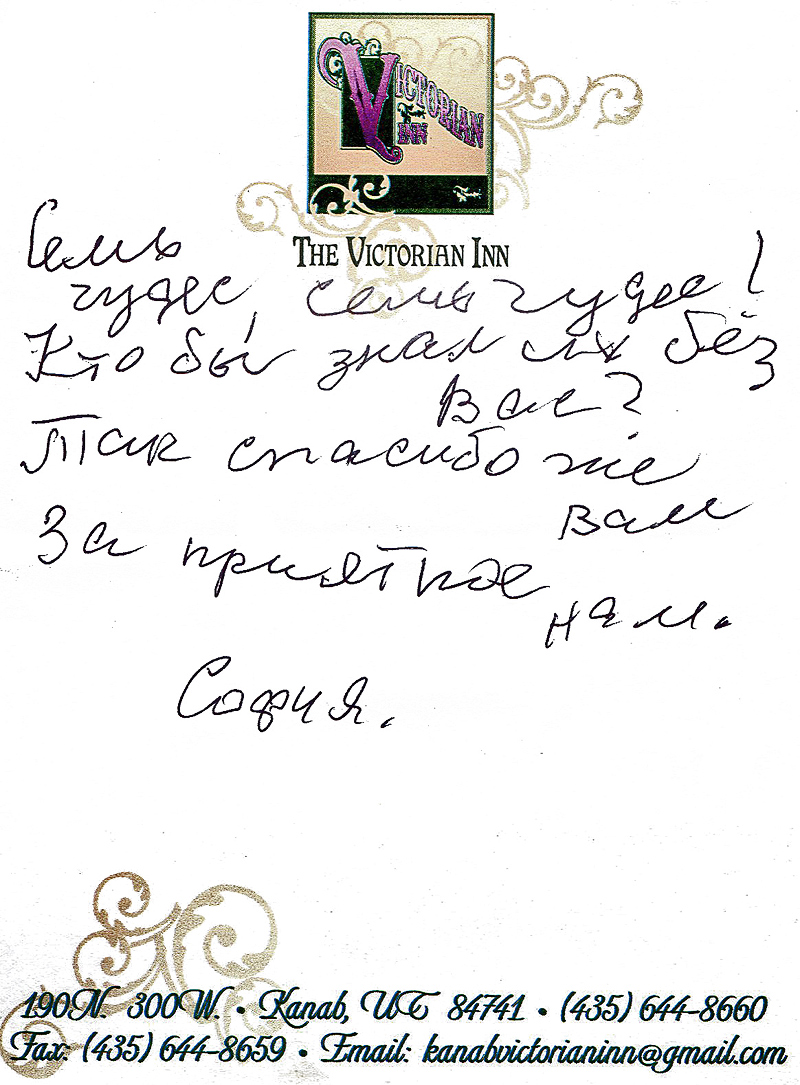 VICTORIAN
INN
THE VICTORIAN INN
Семь
чудес, семь чудес!
Кто бы знал их без
Вас?
Так спасибо же
Вам
За приятное
нам.
София.
190 N. 300 W. • Kanab, UT 84741 • (435) 644-8660
Fax: (435) 644-8659 • Email: kanabvictorianinn@gmail.com